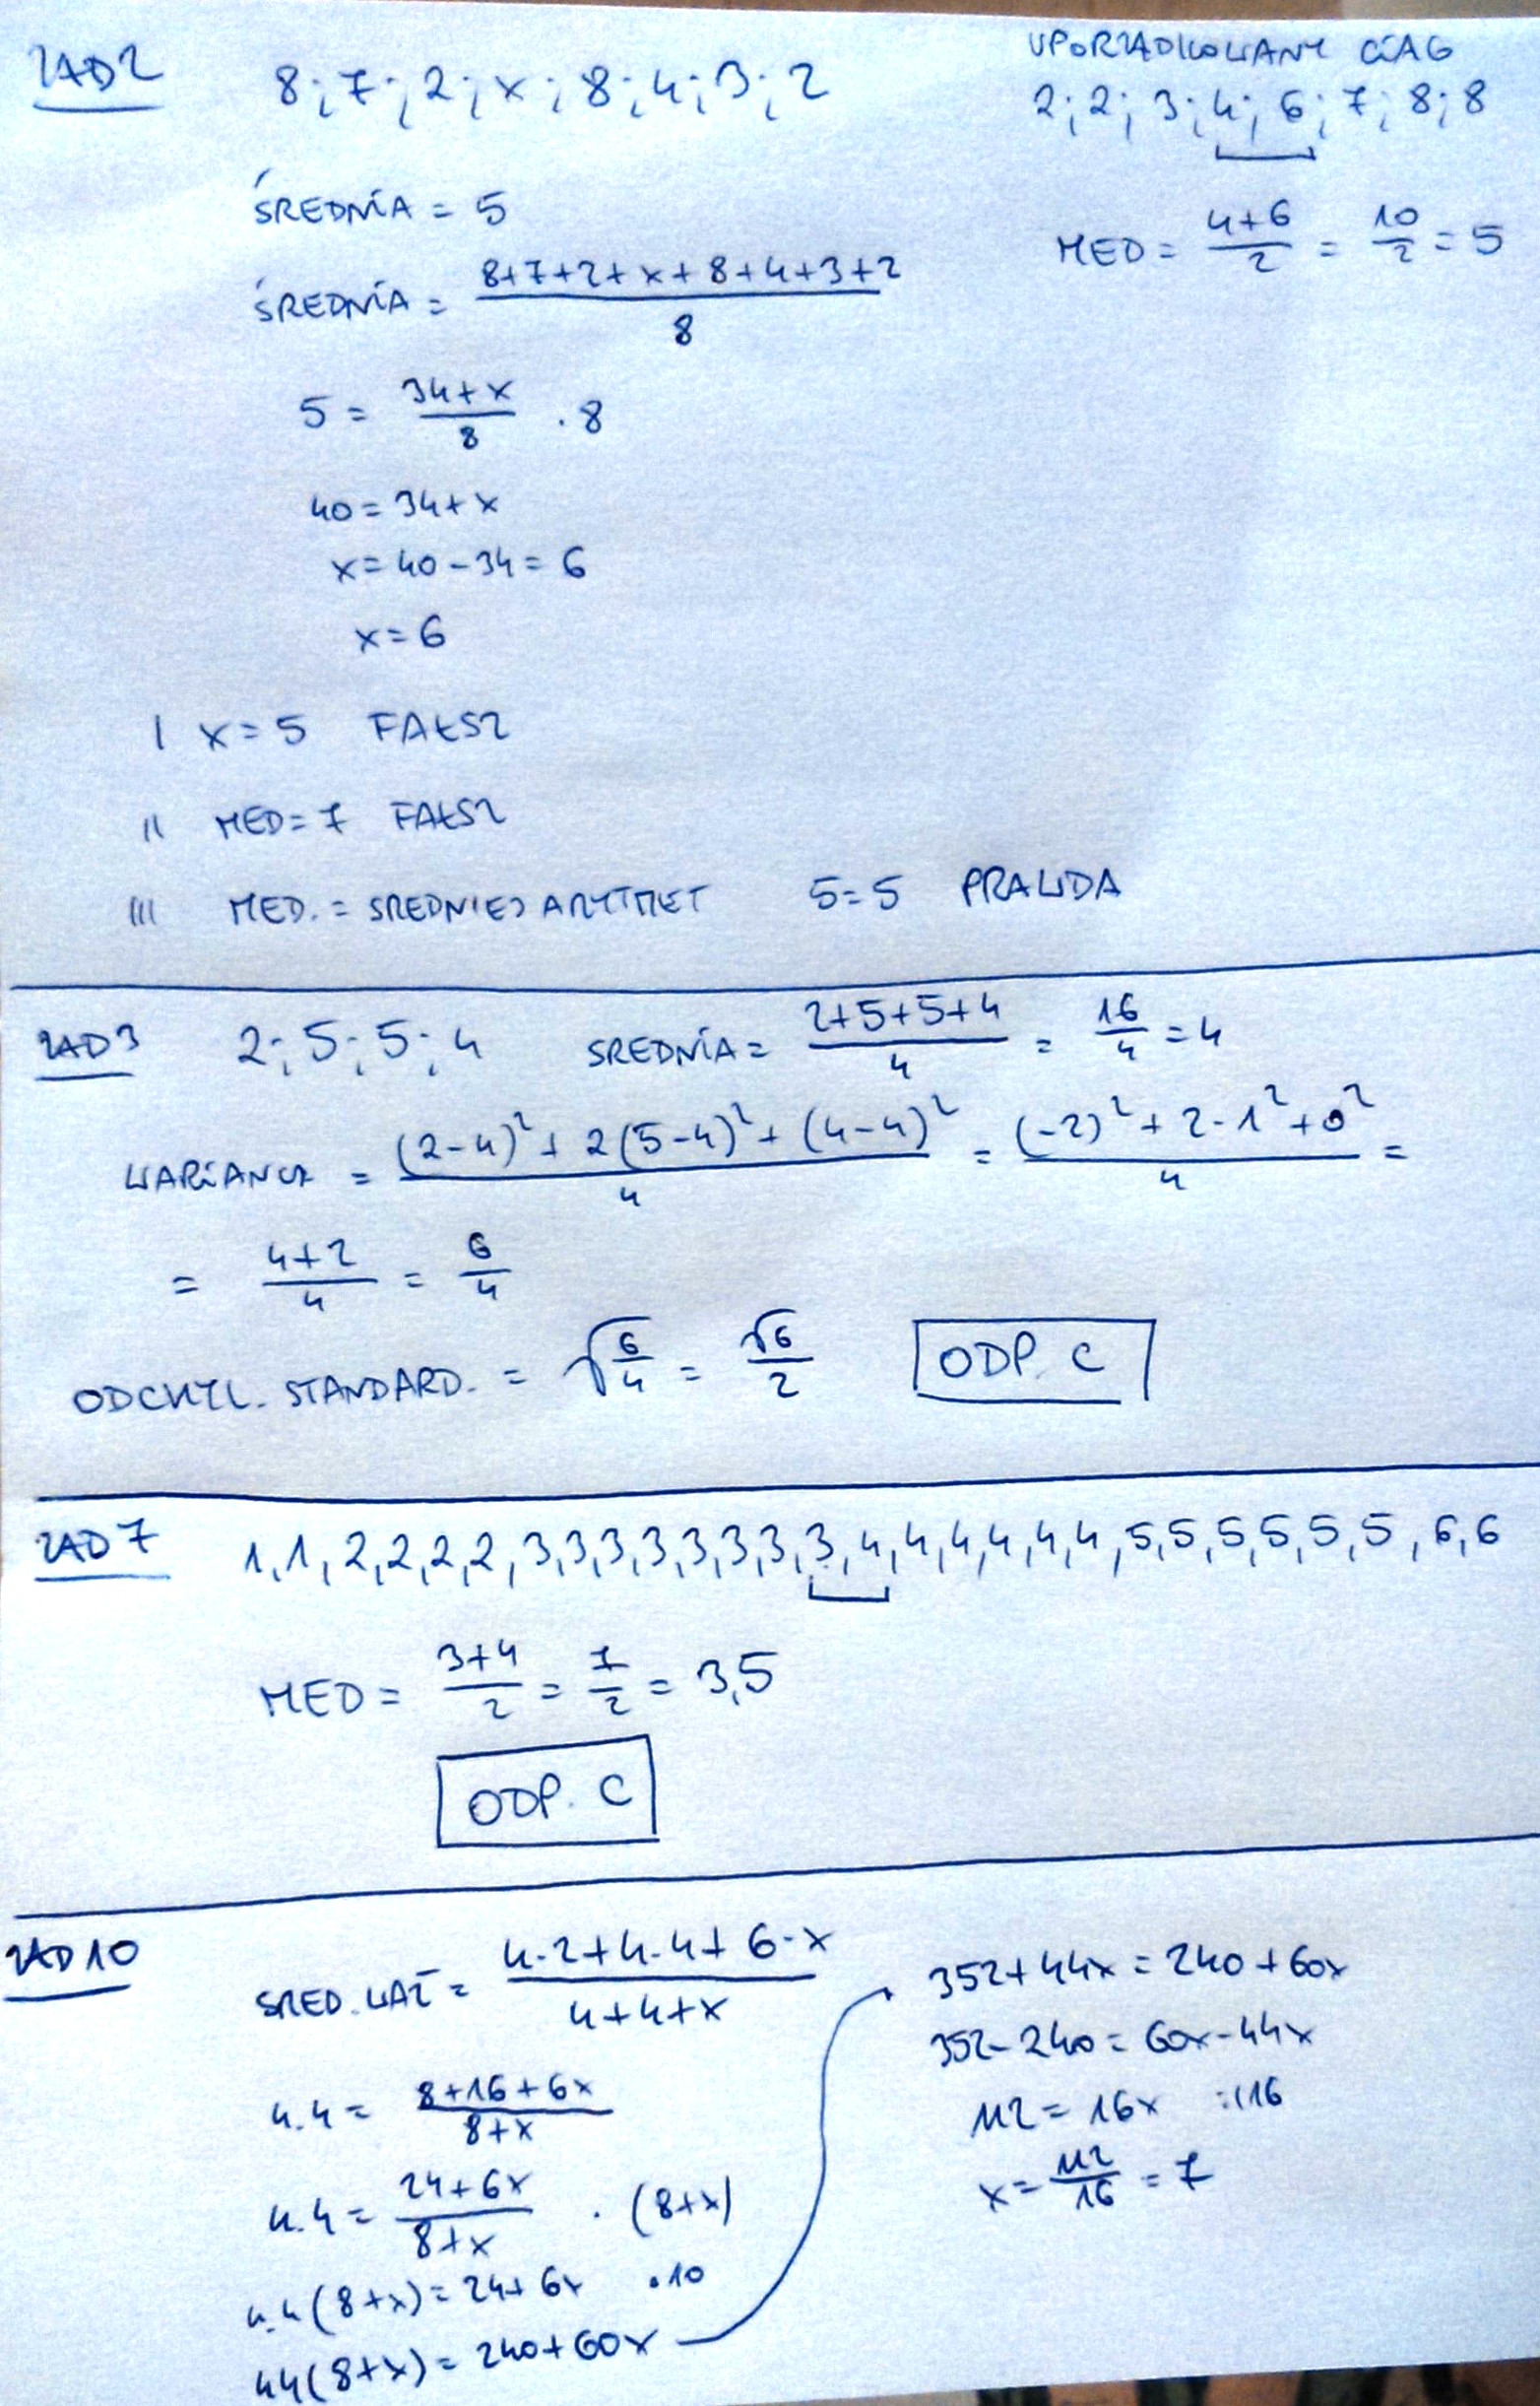 ZAD 2
8; 7; 2; x; 8; 4; 3; 2
ŚREDNIA = 5
ŚREDNIA = (8+7+2+x+8+4+3+2)/8
5 = (34+x)/8 · 8
40 = 34+x
x = 40 - 34 = 6
x = 6
UPORZADKOWANY CIAG
2; 2; 3; 4; 6; 7; 8; 8
MED = (4+6)/2 = 10/2 = 5
I x = 5 FAŁSZ
II MED = 7 FAŁSZ
III MED. = SREDNIEJ ARYTMET 5 = 5 PRAWDA
ZAD 3
2; 5; 5; 4 SREDNIA = (2+5+5+4)/4 = 16/4 = 4
WARIANCJA = ((2-4)²+2(5-4)²+(4-4)²)/4 = ((-2)²+2·1²+0²)/4 =
= (4+2)/4 = 6/4
ODCHYL. STANDARD. = √(6/4) = √6/2 ODP. C
ZAD 7
1,1,2,2,2,2,3,3,3,3,3,3,3,3,4,4,4,4,4,4,5,5,5,5,5,5,6,6
MED = (3+4)/2 = 7/2 = 3,5
ODP. C
ZAD 10
SRED. WAŻ = (4·2+4·4+6·x)/(4+4+x)
4.4 = (8+16+6x)/(8+x)
4.4 = (24+6x)/(8+x) · (8+x)
4.4(8+x) = 24+6x ·10
44(8+x) = 240+60x
352+44x = 240+60x
352-240 = 60x-44x
112 = 16x :(16
x = 112/16 = 7